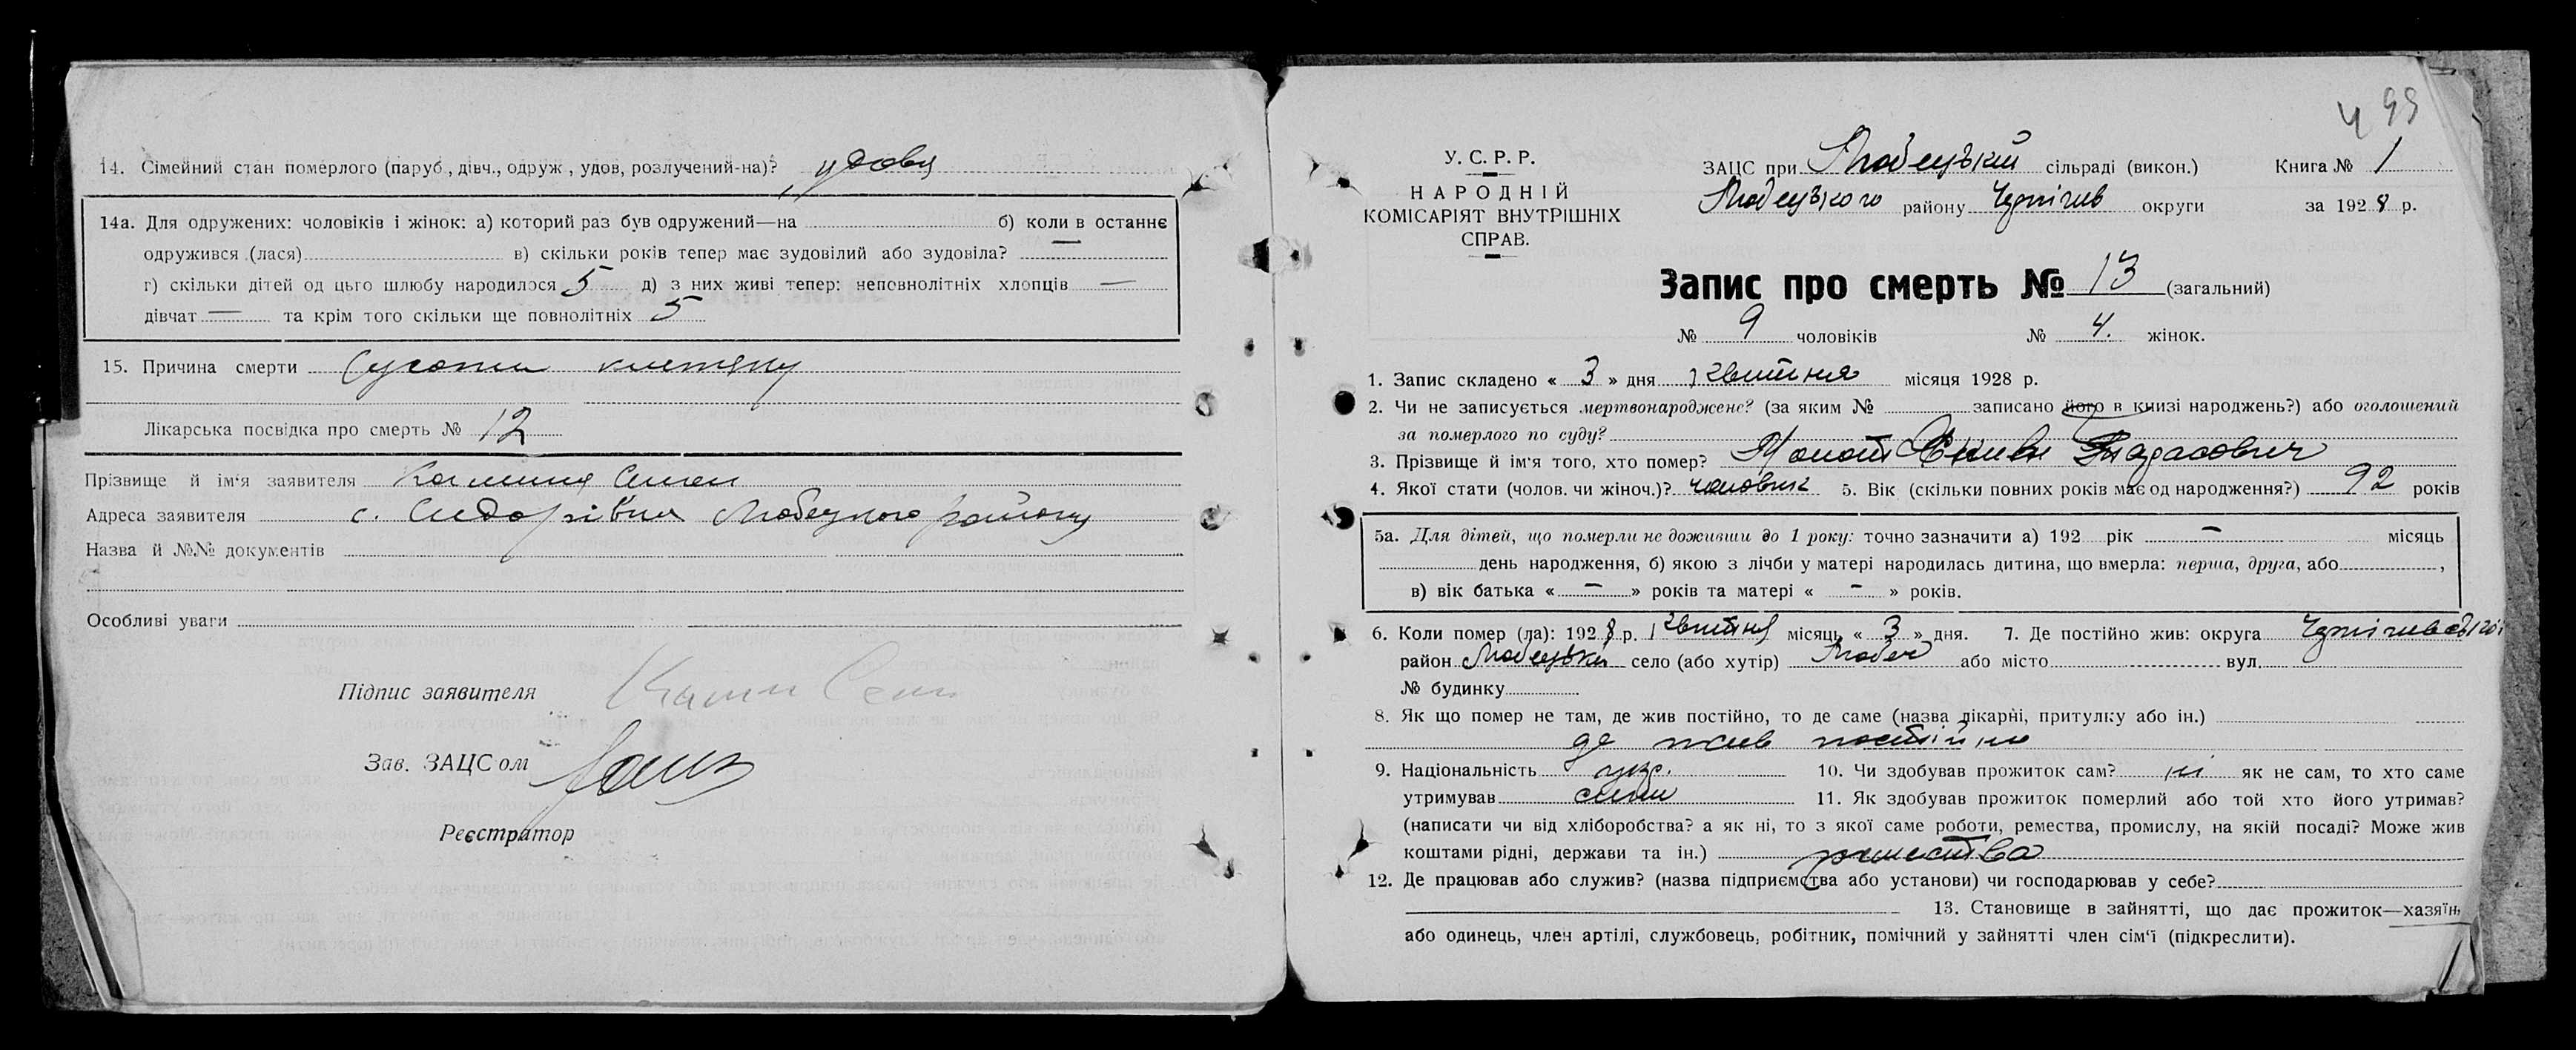 14. Сімейний стан померлого (паруб., дівч., одруж., удов, розлучений-на)? удовец
14а. Для одружених: чоловіків і жінок: а) которий раз був одружений—на б) коли в останнє
одружився (лася) в) скільки років тепер має зудовілий або зудовіла? —
г) скільки дітей од цього шлюбу народилося 5 д) з них живі тепер: неповнолітніх хлопців —
дівчат — та крім того скільки ще повнолітніх 5
15. Причина смерти
Лікарська посвідка про смерть № 12
Прізвище й ім'я заявителя Семен
Адреса заявителя с. Сидорівка Любецкого району
Назва й №№ документів
Особливі уваги
Підпис заявителя
Зав. ЗАЦСом
Реєстратор
4 99
У. С. Р. Р.
НАРОДНІЙ
КОМІСАРІЯТ ВНУТРІШНІХ
СПРАВ.
ЗАЦС при Любецький сільраді (викон.) Книга № 1
Любецького району Чернігів округи за 1928 р.
Запис про смерть № 13 (загальний)
№ 9 чоловіків № 4. жінок.
1. Запис складено « 3 » дня квитня місяця 1928 р.
2. Чи не записується мертвонароджене? (за яким № записано його в книзі народжень?) або оголошений
за померлого по суду?
3. Прізвище й ім'я того, хто помер? Тарасович
4. Якої стати (чолов. чи жіноч.)? чоловик 5. Вік (скільки повних років має од народження?) 92 років
5а. Для дітей, що померли не доживши до 1 року: точно зазначити а) 192 рік — місяць
день народження, б) якою з лічби у матері народилась дитина, що вмерла: перша, друга, або ,
в) вік батька « — » років та матері « — » років.
6. Коли помер (ла): 1928 р. квитня місяць « 3 » дня. 7. Де постійно жив: округа Чернігивській
район Любецький село (або хутір) Любеч або місто вул.
№ будинку
8. Як що помер не там, де жив постійно, то де саме (назва лікарні, притулку або ін.)
де жив постійно
9. Національність укр. 10. Чи здобував прожиток сам? ні як не сам, то хто саме
утримував сини 11. Як здобував прожиток померлий або той хто його утримав?
(написати чи від хліборобства? а як ні, то з якої саме роботи, ремества, промислу, на якій посаді? Може жив
коштами рідні, держави та ін.) ремества
12. Де працював або служив? (назва підприємства або установи) чи господарював у себе?
13. Становище в зайнятті, що дає прожиток—хазяїн,
або одинець, член артілі, службовець, робітник, помічний у зайнятті член сім'ї (підкреслити).